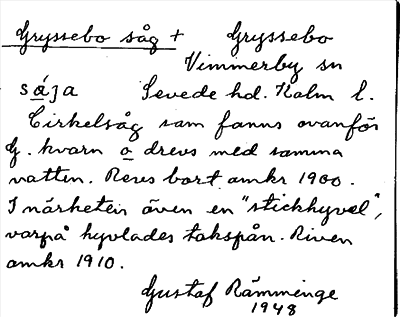 Gryssebo såg + Gryssebo
Vimmerby sn
såja Sevede hd. Kalm l.
Cirkelsåg som fanns ovanför
G. kvarn o drevs med samma
vatten. Revs bort omkr 1900.
I närheten även en "stickhyvel",
varpå hyvlades takspån. Riven
omkr 1910.
Gustaf Rämminge
1948